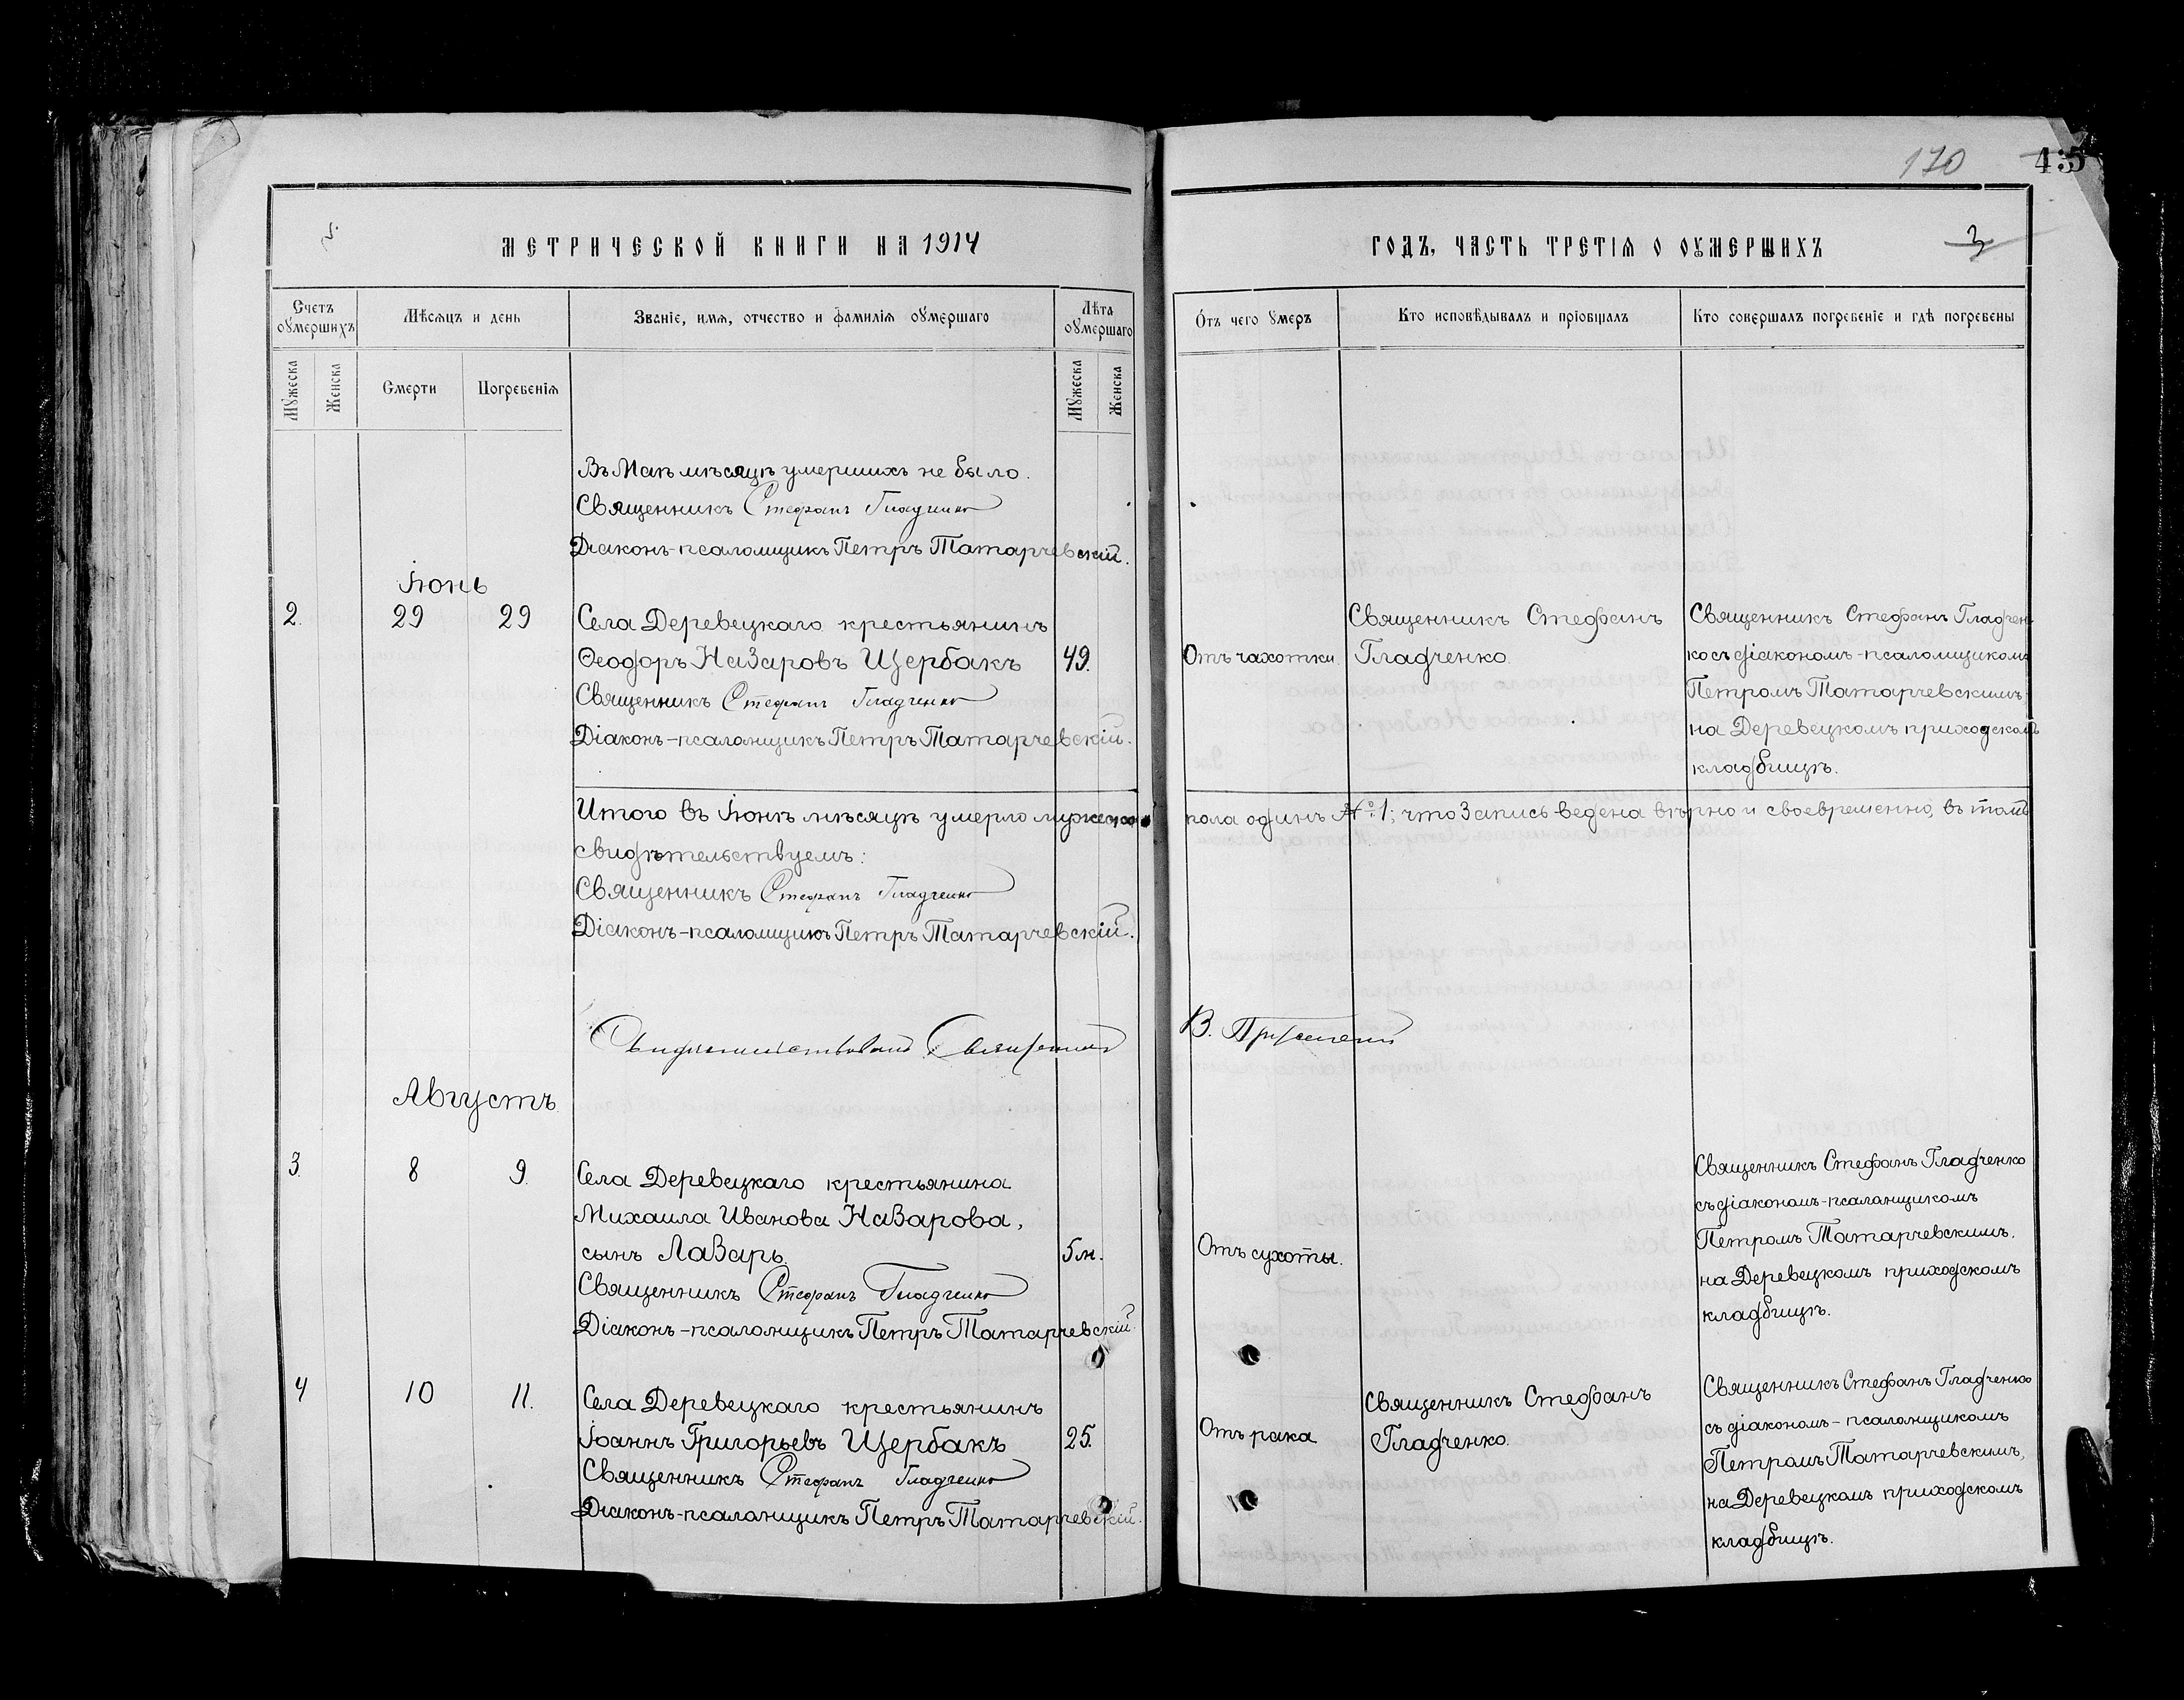 170
435
МЕТРИЧЕСКОЙ КНИГИ НА 1914
ГОДЪ, ЧАСТЬ ТРЕТІЯ О ОУМЕРШИХЪ
3
Счетъ оумершихъ
Мѣсяцъ и день
Званіе, имя, отчество и фамилія оумершаго
Лѣта оумершаго
Отъ чего умеръ
Кто исповѣдывалъ и пріобщалъ
Кто совершалъ погребеніе и гдѣ погребены
Мужеска
Женска
Смерти
Погребенія
Мужеска
Женска
Въ Маѣ мѣсяцѣ умершихъ не было.
Священникъ Стефанъ Гладченко
Діаконъ-псаломщикъ Петръ Татарчевскій.
Іюнь
2.
29
29
Села Деревецкаго крестьянинъ
Ѳеодоръ Назаровъ Щербакъ
Священникъ Стефанъ Гладченко
Діаконъ-псаломщикъ Петръ Татарчевскій.
49.
Отъ чахотки.
Священникъ Стефанъ
Гладченко.
Священникъ Стефанъ Гладчен-
ко съ діакономъ-псаломщикомъ
Петромъ Татарчевскимъ
на Деревецкомъ приходскомъ
кладбищѣ.
Итого въ Іюнѣ мѣсяцѣ умерло мужеска пола одинъ № 1; что запись ведена вѣрно и своевременно, въ томъ
свидѣтельствуемъ:
Священникъ Стефанъ Гладченко
Діаконъ-псаломщикъ Петръ Татарчевскій.
Свидѣтельствовалъ Священникъ В.
Августъ
3.
8
9.
Села Деревецкаго крестьянина
Михаила Иванова Назарова,
сынъ Лазарь.
Священникъ Стефанъ Гладченко
Діаконъ-псаломщикъ Петръ Татарчевскій.
5 м.
Отъ сухоты.
Священникъ Стефанъ Гладченко
съ діакономъ-псаломщикомъ
Петромъ Татарчевскимъ.
на Деревецкомъ приходскомъ
кладбищѣ.
4
10
11.
Села Деревецкаго крестьянинъ
Іоаннъ Григорьевъ Щербакъ
Священникъ Стефанъ Гладченко
Діаконъ-псаломщикъ Петръ Татарчевскій.
25.
Отъ рака
Священникъ Стефанъ
Гладченко.
Священникъ Стефанъ Гладченко
съ діакономъ-псаломщикомъ
Петромъ Татарчевскимъ,
на Деревецкомъ приходскомъ
кладбищѣ.